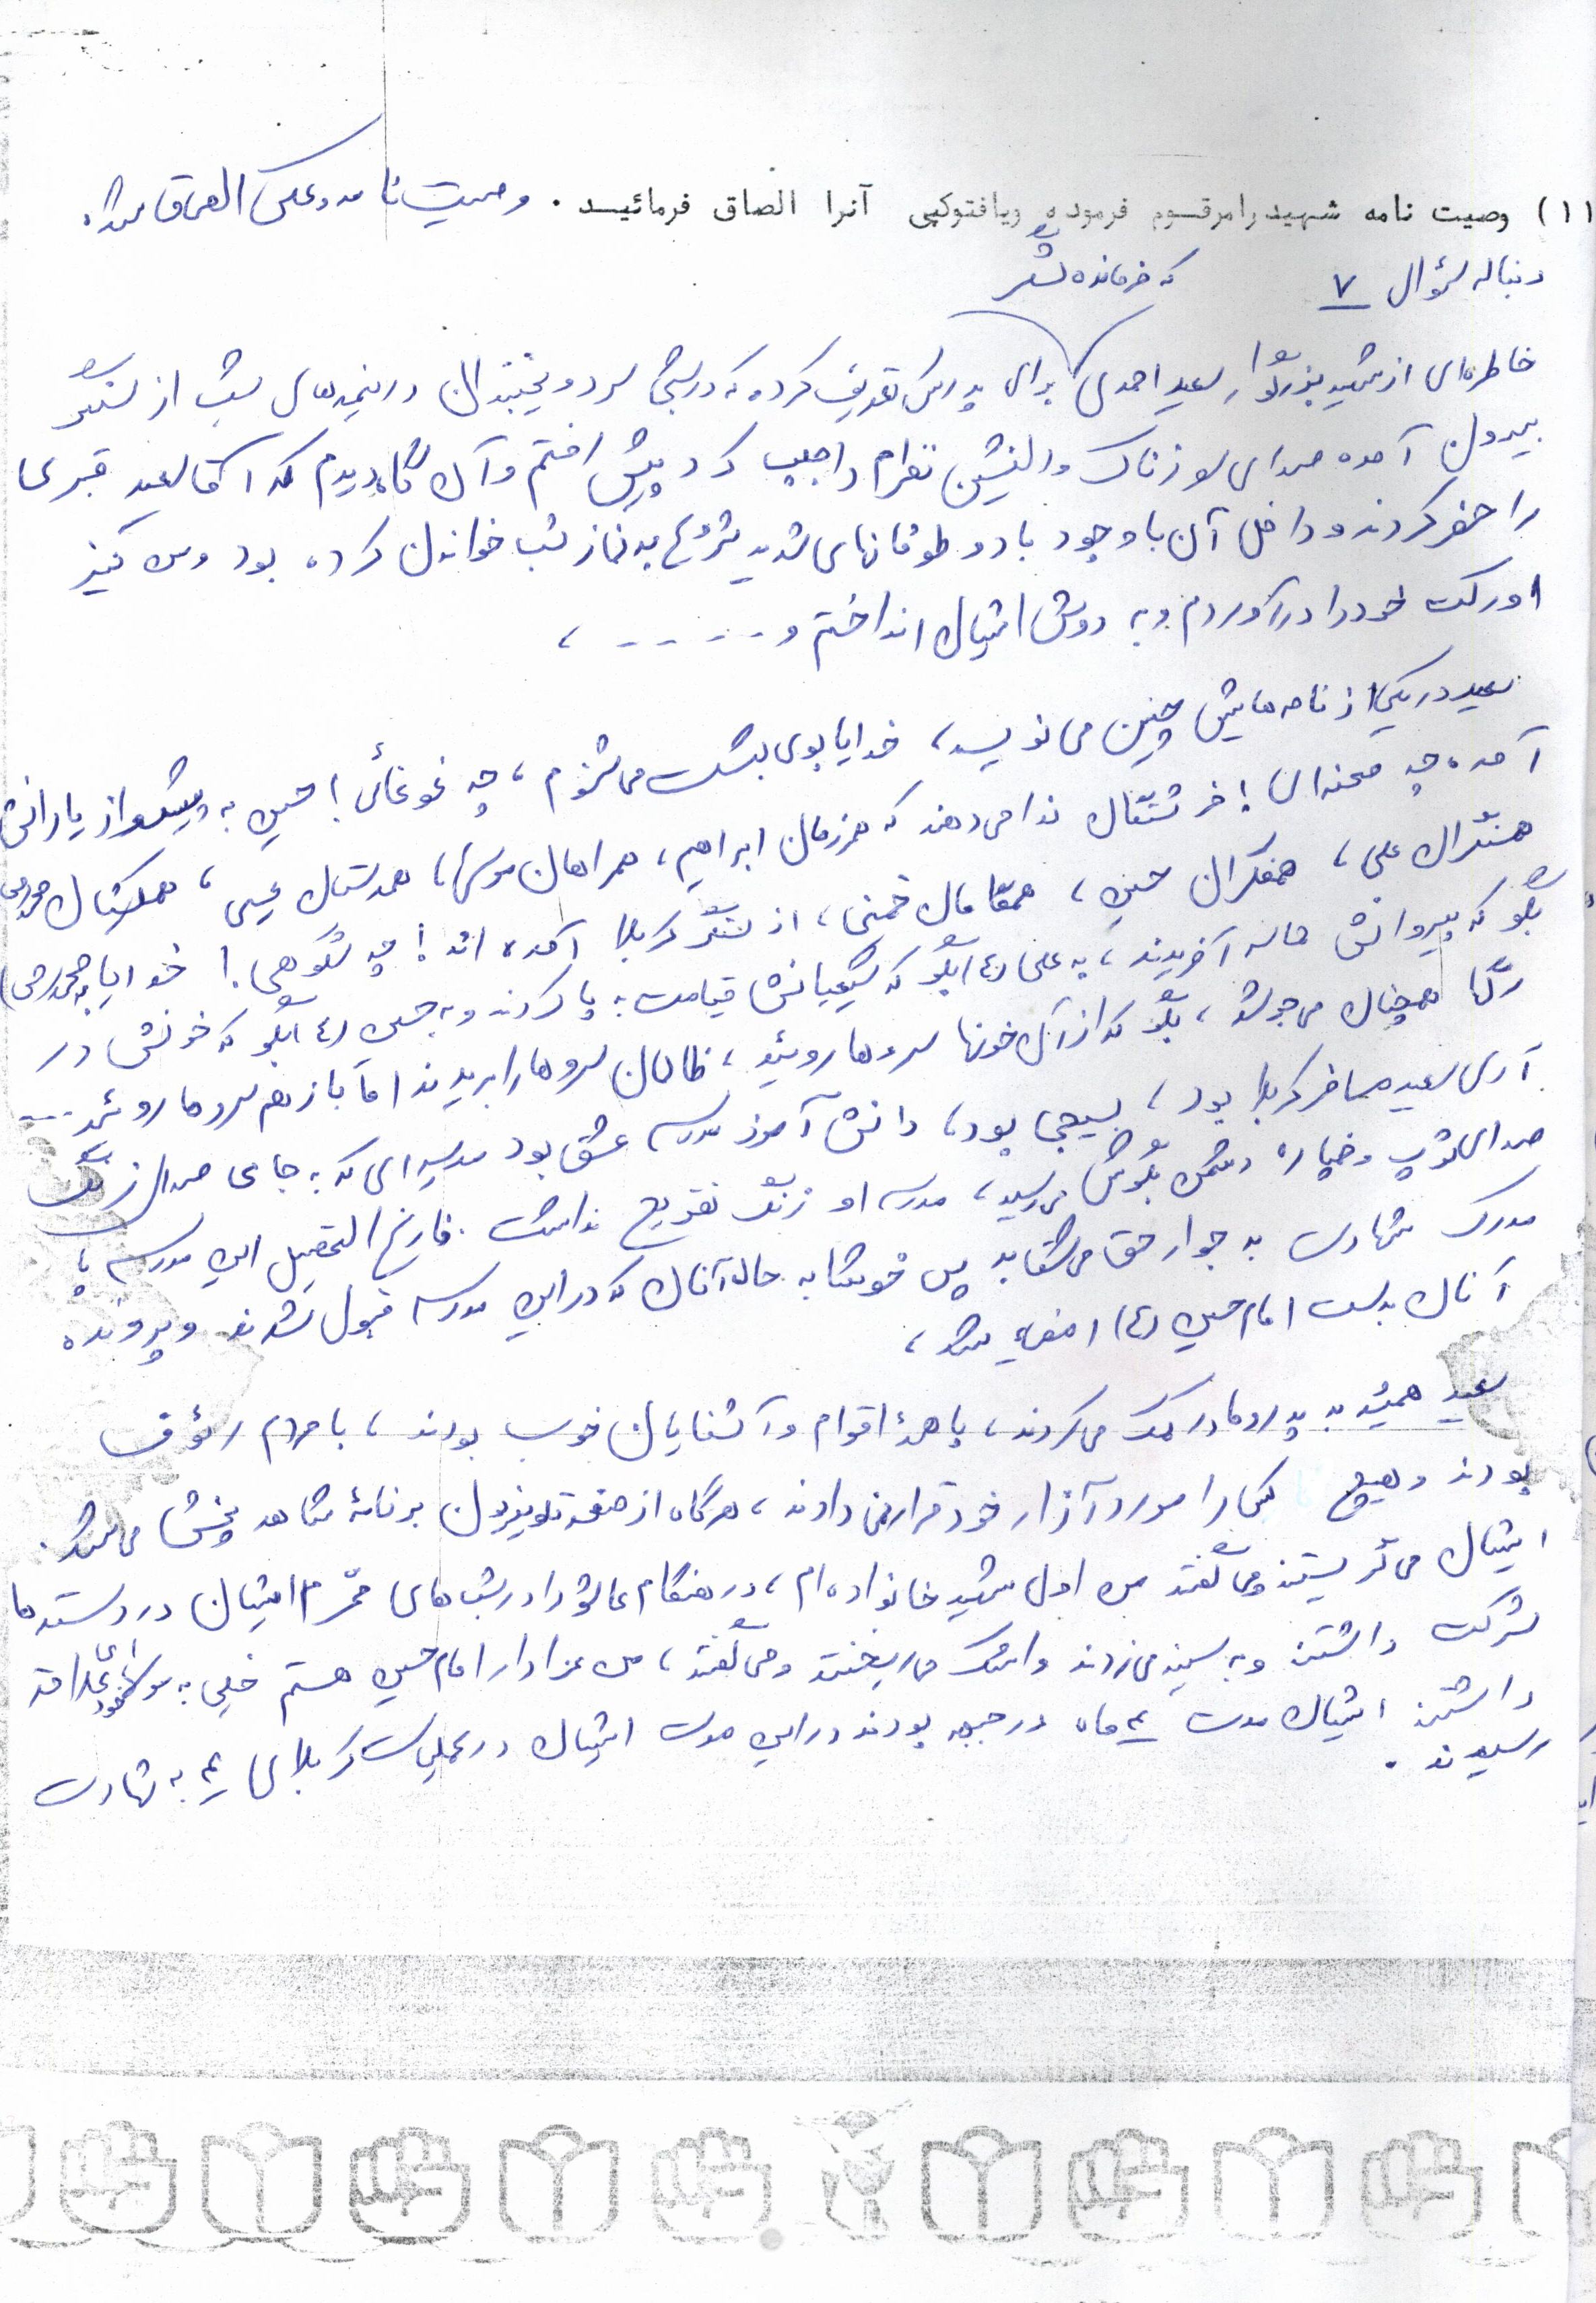 ۱۱) وصیت نامه شهید را مرقسوم فرموده ویافتوکپی آنرا الصاق فرمائیسد . وصیت نامه و عکس الصاق شد.
دنباله سؤال ۷
که فرمانده لشگر
خاطره‌ای از شهید بزرگوار سعید احمدی برای پدرش تعریف کرده که در شبی سرد و یخبندان در نیمه‌های شب از سنگر
بیرون آمده صدای سوزناک و دلنشین نظرام را جلب کرد پیش رفتم و آن گاه دیدم که آقا سعید قبری
را حفر کردند و داخل آن با وجود باد و طوفانهای شدید شروع به نماز شب خواندن کرده بود و من نیز
اورکت خود را درآوردم و به دوش ایشان انداختم و - - - - - ،
سعید در یکی از نامه‌هایش چنین می‌نویسد، خدایا بوی بهشت می‌شنوم، چه غوغائی! حسین به پیشواز یارانش
آمده، چه صحنه‌ای! فرشتگان ندا می‌دهند که همرزمان ابراهیم، همراهان موسی، همدستان عیسی، همکیشان محمد (ص)
همسنگران علی، همفکران حسین، همگامان خمینی، از سنگر کربلا آمده اند! چه شکوهی! خدایا به محمد (ص)
بگو که پیروانش حماسه آفریدند، به علی (ع) بگو که شیعیانش قیامت به پا کردند و به حسین (ع) بگو که خونش در
رگها همچنان می‌جوشد، بگو که از آن خونها سروها روئید، ظالمان سروها را بریدند اما باز هم سروها روئید ---
آری سعید مسافر کربلا بود، بسیجی بود، دانش آموز مدرسه عشق بود مدرسه‌ای که به جای صدای زنگ
صدای توپ و خمپاره دشمن بگوش می‌رسید، مدرسه او زنگ تفریح نداشت. فارغ التحصیل این مدرسه با
مدرک شهادت به جوار حق می‌شتابد پس خوشا به حال آنان که در این مدرسه قبول شدند و پرونده
آنان بدست امام حسین (ع) امضاء شد،
سعید همیشه به پدر و مادر کمک می‌کردند، با همهٔ اقوام و آشنایان خوب بودند، با مردم رئوف
بودند و هیچ کس را مورد آزار خود قرار نمی دادند، هرگاه از صفحه تلویزیون برنامهٔ شاهد پخش می‌شد.
ایشان می‌گریستند و می گفتند من اول شهید خانواده‌ام، در هنگام عاشورا در شب های محرم ایشان در دسته‌ها
شرکت داشتند و به سینه می‌زدند و اشک می‌ریختند و می گفتند، من عزادار امام حسین هستم خیلی به علاقه
داشتند ایشان مدت ۴ ماه در جبهه بودند در این مدت ایشان در عملیات کربلای ۴ به شهادت
رسیدند.